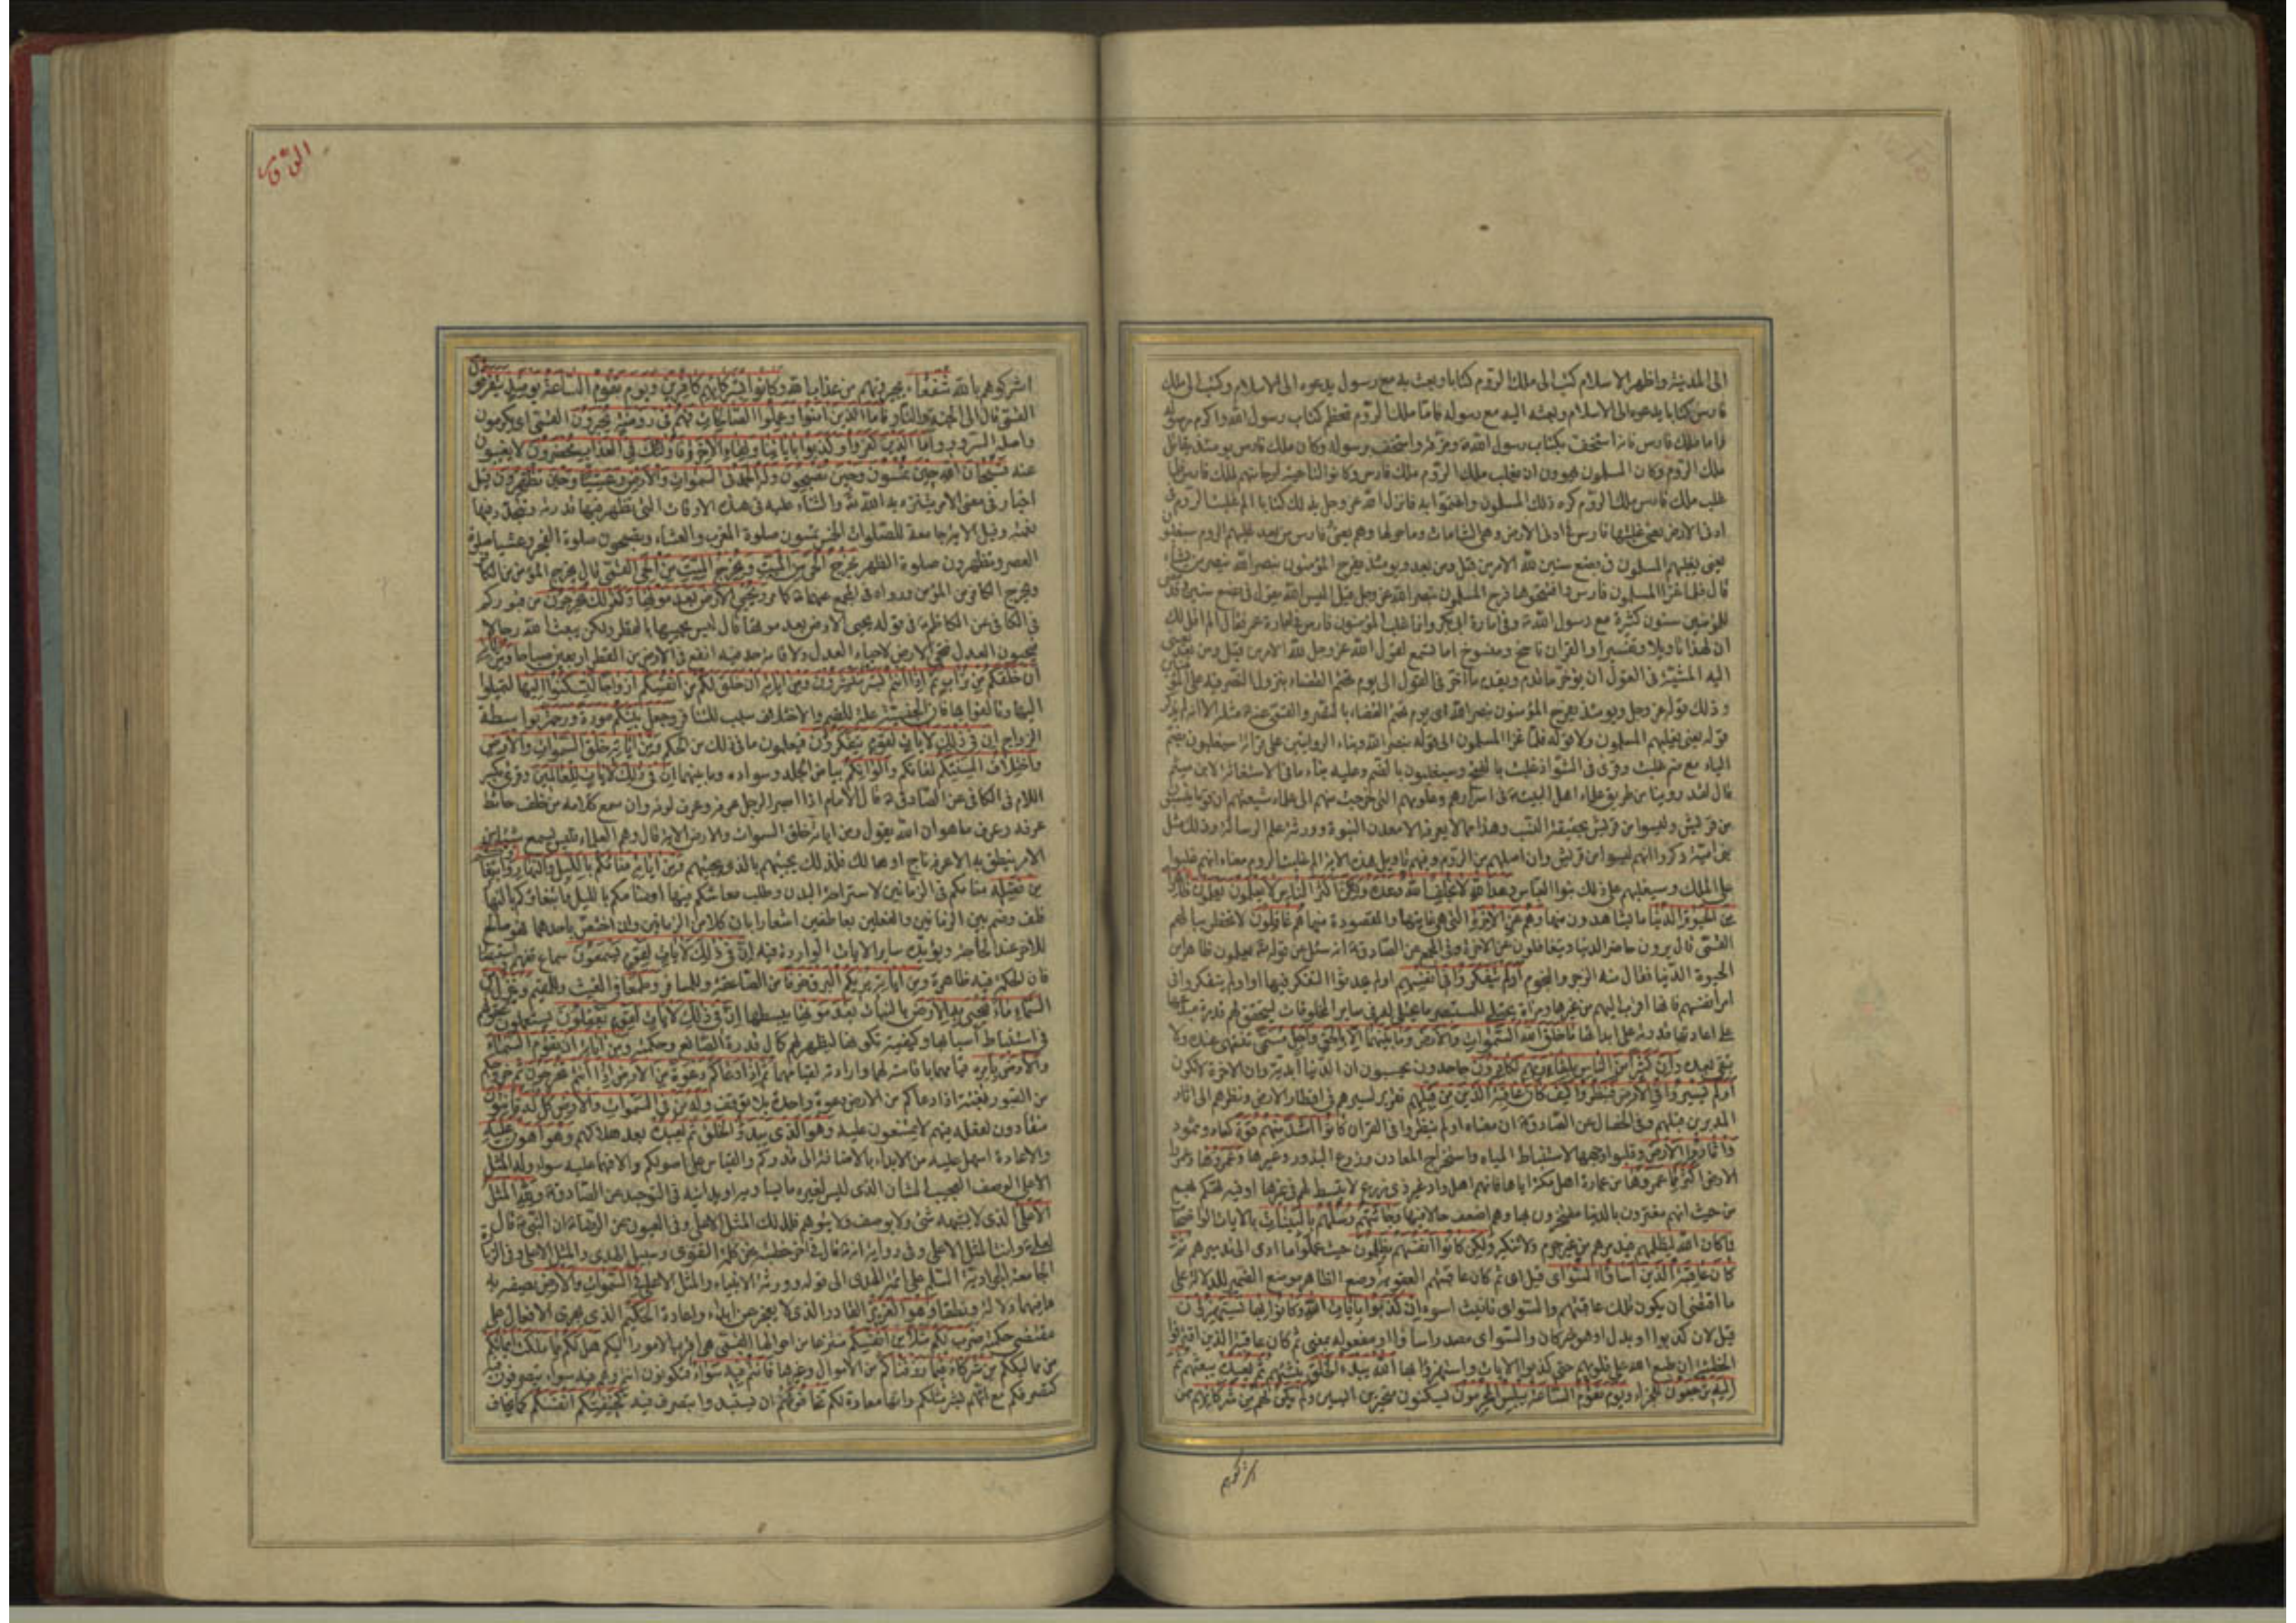 الى المدينة واظهر الاسلام كتب الى ملك الروم كتابا وبعث به مع رسول يدعوه الى الاسلام وكتب الى ملك
فارس كتابا يدعوه الى الاسلام وبعثه اليه مع رسوله فاما ملك الروم فعظم كتاب رسول الله واكرم رسوله
واما ملك فارس فانه استخف بكتاب رسول الله ومزقه واستخف برسوله وكان ملك فارس يومئذ يقاتل
ملك الروم وكان المسلمون يهوون ان يغلب ملك الروم ملك فارس وكانوا لناحيته ارجا منهم لملك فارس فلما
غلب ملك فارس ملك الروم كره ذلك المسلمون واغتموا به فانزل الله عز وجل بذلك كتابا الم غلبت الروم في
ادنى الارض يعني غلبتها فارس في ادنى الارض وهي الشامات وما حولها وهم يعني فارس من بعد غلبهم الروم سيغلبون
يعني يغلبهم المسلمون في بضع سنين لله الامر من قبل ومن بعد ويومئذ يفرح المؤمنون بنصر الله ينصر من يشاء
قال فلما غزا المسلمون فارس وافتتحوها فرح المسلمون بنصر الله عز وجل قيل اليس الله يقول في بضع سنين وقد مضى
للمؤمنين سنون كثيرة مع رسول الله وفي امارة ابي بكر وانما غلب المؤمنون فارس في امارة عمر فقال الم اقل لك
ان لهذا تاويلا وتفسيرا والقران ناسخ ومنسوخ اما تسمع لقول الله عز وجل لله الامر من قبل ومن بعد يعني
اليه المشيئة في القول ان يؤخر ما قدم ويقدم ما اخر في القول الى يوم تحتم القضاء بنزول النصر فيه على المؤمنين
وذلك قوله عز وجل ويومئذ يفرح المؤمنون بنصر الله اي يوم تحتم القضاء بالنصر والقمي عنه مثله الا انه لم يذكر
قوله يعني يغلبهم المسلمون ولا قوله فلما غزا المسلمون الى قوله بنصر الله وبناء الروايتين على قرائة سيغلبون بضم
الياء مع ضم غلبت وقرئ في الشواذ غلبت بالفتح وسيغلبون بالضم وعليه بناء ما في الاستغاثة لابن ميثم
قال لقد روينا من طريق علماء اهل البيت في اسرارهم وعلومهم التي خرجت منهم الى علماء شيعتهم ان قوما ينسبون
من قريش وليسوا من قريش بحقيقة النسب وهذا مما لا يعرفه الا معدن النبوة وورثة علم الرسالة وذلك مثل
بني امية ذكروا انهم ليسوا من قريش وان اصلهم من الروم وفيهم تاويل هذه الاية الم غلبت الروم معناه انهم غلبوا
على الملك وسيغلبهم على ذلك بنو العباس وعد الله لا يخلف الله وعده ولكن اكثر الناس لا يعلمون يعلمون ظاهرا
من الحيوة الدنيا ما يشاهدون منها وهم عن الاخرة التي هي غايتها والمقصودة منها هم غافلون لا تخطر ببالهم
القمي قال يرون حاضر الدنيا ويتغافلون عن الاخرة وفي المجمع عن الصادق انه سئل عن قوله تعالى يعلمون ظاهرا من
الحيوة الدنيا فقال منه الزجر والنجوم اولم يتفكروا في انفسهم اولم يحدثوا التفكر فيها او اولم يتفكروا في
امر انفسهم فانها اقرب اليهم من غيرها ومراة يجتلى للمستبصر ما يجتلى له في سائر المخلوقات ليتحقق لهم قدرة مبدعها
على اعادتها قدرته على ابدائها ما خلق الله السموات والارض وما بينهما الا بالحق واجل مسمى تنتهي عنده ولا
تبقى بعده وان كثيرا من الناس بلقاء ربهم لكافرون جاحدون يحسبون ان الدنيا ابدية وان الاخرة لا تكون
اولم يسيروا في الارض فينظروا كيف كان عاقبة الذين من قبلهم تقرير لسيرهم في اقطار الارض ونظرهم الى اثار
المدمرين قبلهم وفي الخصال عن الصادق ان معناه اولم ينظروا في القران كانوا اشد منهم قوة كعاد وثمود
واثاروا الارض وقلبوا وجهها لاستنباط المياه واستخراج المعادن وزرع البذور وغيرها وعمروها وعمروا
الارض اكثر مما عمروها من عمارة اهل مكة اياها فانهم اهل واد غير ذي زرع لا تبسط لهم في غيرها وفيه تهكم بهم
من حيث انهم مغترون بالدنيا مفتخرون بها وهم اضعف حالا فيها وجائتهم رسلهم بالبينات بالايات الواضحات
فما كان الله ليظلمهم فيدمرهم من غير جرم ولا تذكير ولكن كانوا انفسهم يظلمون حيث عملوا ما ادى الى تدميرهم ثم
كان عاقبة الذين اساؤا السواى قيل اي ثم كان عاقبتهم العقوبة وضع الظاهر موضع الضمير للدلالة على
ما اقتضى ان يكون تلك عاقبتهم والسواى تانيث اسوء ان كذبوا بايات الله وكانوا بها يستهزؤن
قيل لان كذبوا او بدل او هو خبر كان والسواى مصدر اساؤا او مفعوله بمعنى ثم كان عاقبة الذين اقترفوا
الخطيئة ان طبع الله على قلوبهم حتى كذبوا الايات واستهزؤا بها الله يبدء الخلق ينشئهم ثم يعيده يبعثهم ثم
اليه ترجعون للجزاء ويوم تقوم الساعة يبلس المجرمون يسكتون متحيرين ايسين ولم يكن لهم من شركائهم ممن
اشركوهم
اشركوهم بالله شفعاء يجيرونهم من عذاب الله وكانوا بشركائهم كافرين ويوم تقوم الساعة يومئذ يتفرقون
القمي قال الى الجنة والنار فاما الذين امنوا وعملوا الصالحات فهم في روضة يحبرون القمي اي يكرمون
واصله السرور واما الذين كفروا وكذبوا باياتنا ولقاء الاخرة فاولئك في العذاب محضرون لا يغيبون
عنه فسبحان الله حين تمسون وحين تصبحون وله الحمد في السموات والارض وعشيا وحين تظهرون قيل
اخبار في معنى الامر بتنزيه الله تعالى والثناء عليه في هذه الاوقات التي تظهر فيها قدرته وتتجدد فيها
نعمته وقيل الاية جامعة للصلوات الخمس تمسون صلوة المغرب والعشاء وتصبحون صلوة الفجر وعشيا صلوة
العصر وتظهرون صلوة الظهر يخرج الحي من الميت ويخرج الميت من الحي القمي قال يخرج المؤمن من الكافر
ويخرج الكافر من المؤمن ورواه في المجمع عنهما كما مر ويحيي الارض بعد موتها وكذلك تخرجون من قبوركم
في الكافي عن الكاظم في قوله يحيي الارض بعد موتها قال ليس يحييها بالقطر ولكن يبعث الله رجالا
فيحيون العدل فتحيى الارض لاحياء العدل ولاقامة حد فيه انفع في الارض من القطر اربعين صباحا ومن اياته
ان خلقكم من تراب ثم اذا انتم بشر تنتشرون ومن اياته ان خلق لكم من انفسكم ازواجا لتسكنوا اليها لتميلوا
اليها وتالفوا بها فان الجنسية علة للضم والاختلاف سبب للتنافر وجعل بينكم مودة ورحمة بواسطة
الزواج ان في ذلك لايات لقوم يتفكرون فيعلمون ما في ذلك من الحكم ومن اياته خلق السموات والارض
واختلاف السنتكم لغاتكم والوانكم بياض الجلد وسواده وما بينهما ان في ذلك لايات للعالمين وقرئ بكسر
اللام في الكافي عن الصادق قال الامام اذا ابصر الرجل عرفه وعرف لونه وان سمع كلامه من خلف حائط
عرفه وعرف ما هو ان الله يقول ومن اياته خلق السموات والارض الاية قال وهم العلماء فليس يسمع شيئا من
الامر ينطق به الا عرفه ناج او هالك فلذلك يجيبهم بالذي يجيبهم ومن اياته منامكم بالليل والنهار وابتغاؤكم
من فضله منامكم في الزمانين لاستراحة البدن وطلب معاشكم فيهما او منامكم بالليل وابتغاؤكم بالنهار
فلف وضم بين الزمانين والفعلين بعاطفين اشعارا بان كلا من الزمانين وان اختص باحدهما فهو صالح
للاخر عند الحاجة ويؤيده سائر الايات الواردة فيه ان في ذلك لايات لقوم يسمعون سماع تفهم واستبصار
فان الحكمة فيه ظاهرة ومن اياته يريكم البرق خوفا من الصاعقة وللمسافر وطمعا في الغيث وللمقيم وينزل من
السماء ماء فيحيي به الارض بالنبات بعد موتها يبسها ان في ذلك لايات لقوم يعقلون يستعملون عقولهم
في استنباط اسبابها وكيفية تكونها ليظهر لهم كمال قدرة الصانع وحكمته ومن اياته ان تقوم السماء
والارض بامره قيامهما باقامته لهما وارادته لقيامهما ثم اذا دعاكم دعوة من الارض اذا انتم تخرجون خروجكم
من القبور بغتة اذا دعاكم من الارض دعوة واحدة بلا توقف وله من في السموات والارض كل له قانتون
منقادون لفعله فيهم لا يمتنعون عليه وهو الذي يبدؤ الخلق ثم يعيده بعد هلاكهم وهو اهون عليه
والاعادة اسهل عليه من الابداء بالاضافة الى قدركم والقياس على اصولكم والا فهما عليه سواء وله المثل
الاعلى الوصف العجيب الشان الذي ليس لغيره ما يساويه او يدانيه في التوحيد عن الصادق ولله المثل
الاعلى الذي لا يشبهه شئ ولا يوصف ولا يتوهم فذلك المثل الاعلى وفي العيون عن الرضا ان النبي قال
لعلي وانت المثل الاعلى وفي رواية انه قال في اخر خطبته نحن كلمة التقوى وسبيل الهدى والمثل الاعلى وفي الزيارة
الجامعة الجوادية السلم على ائمة الهدى الى قوله وورثة الانبياء والمثل الاعلى في السموات والارض يصفه به
ما فيهما دلالة ونطقا وهو العزيز القادر الذي لا يعجز عن ابداء واعادة الحكيم الذي يجري الافعال على
مقتضى حكمته ضرب لكم مثلا من انفسكم منتزعا من احوالها القمي هي اقرب الامور اليكم هل لكم مما ملكت ايمانكم
من مماليككم من شركاء فيما رزقناكم من الاموال وغيرها فانتم فيه سواء فتكونون انتم وهم فيه سواء يتصرفون فيه
كتصرفكم مع انهم بشر مثلكم وانها معارة لكم تخافونهم ان يستبدوا بتصرف فيه كخيفتكم انفسكم كما يخاف